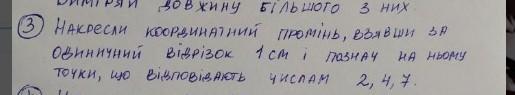 виміряй довжину більшого з них.
3 Накресли координатний промінь, взявши за
одиничний відрізок 1 см і познач на ньому
точки, що відповідають числам 2, 4, 7.